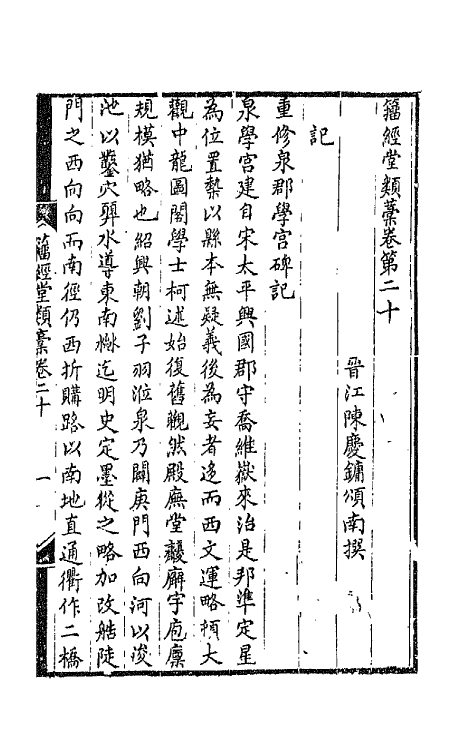 籀經堂類藁卷第二十
晉江陳慶鏞頌南撰
記
重修泉郡學宮碑記
泉學宮建自宋太平興國郡守喬維嶽來治是邦準定星
為位置槷以縣本無疑義後為妄者迻而西文運略頓大
觀中龍圖閣學士柯述始復舊觀然殿廡堂齋廨宇庖廩
規模猶略也紹興朝劉子羽涖泉乃闢庚門西向河以浚
池以鑿穴齶水導東南桥迄明史定墨從之略加改䑨陡
門之西向向而南徑仍西折購路以南地直通衢作二橋
籀經堂類藁卷二十
一